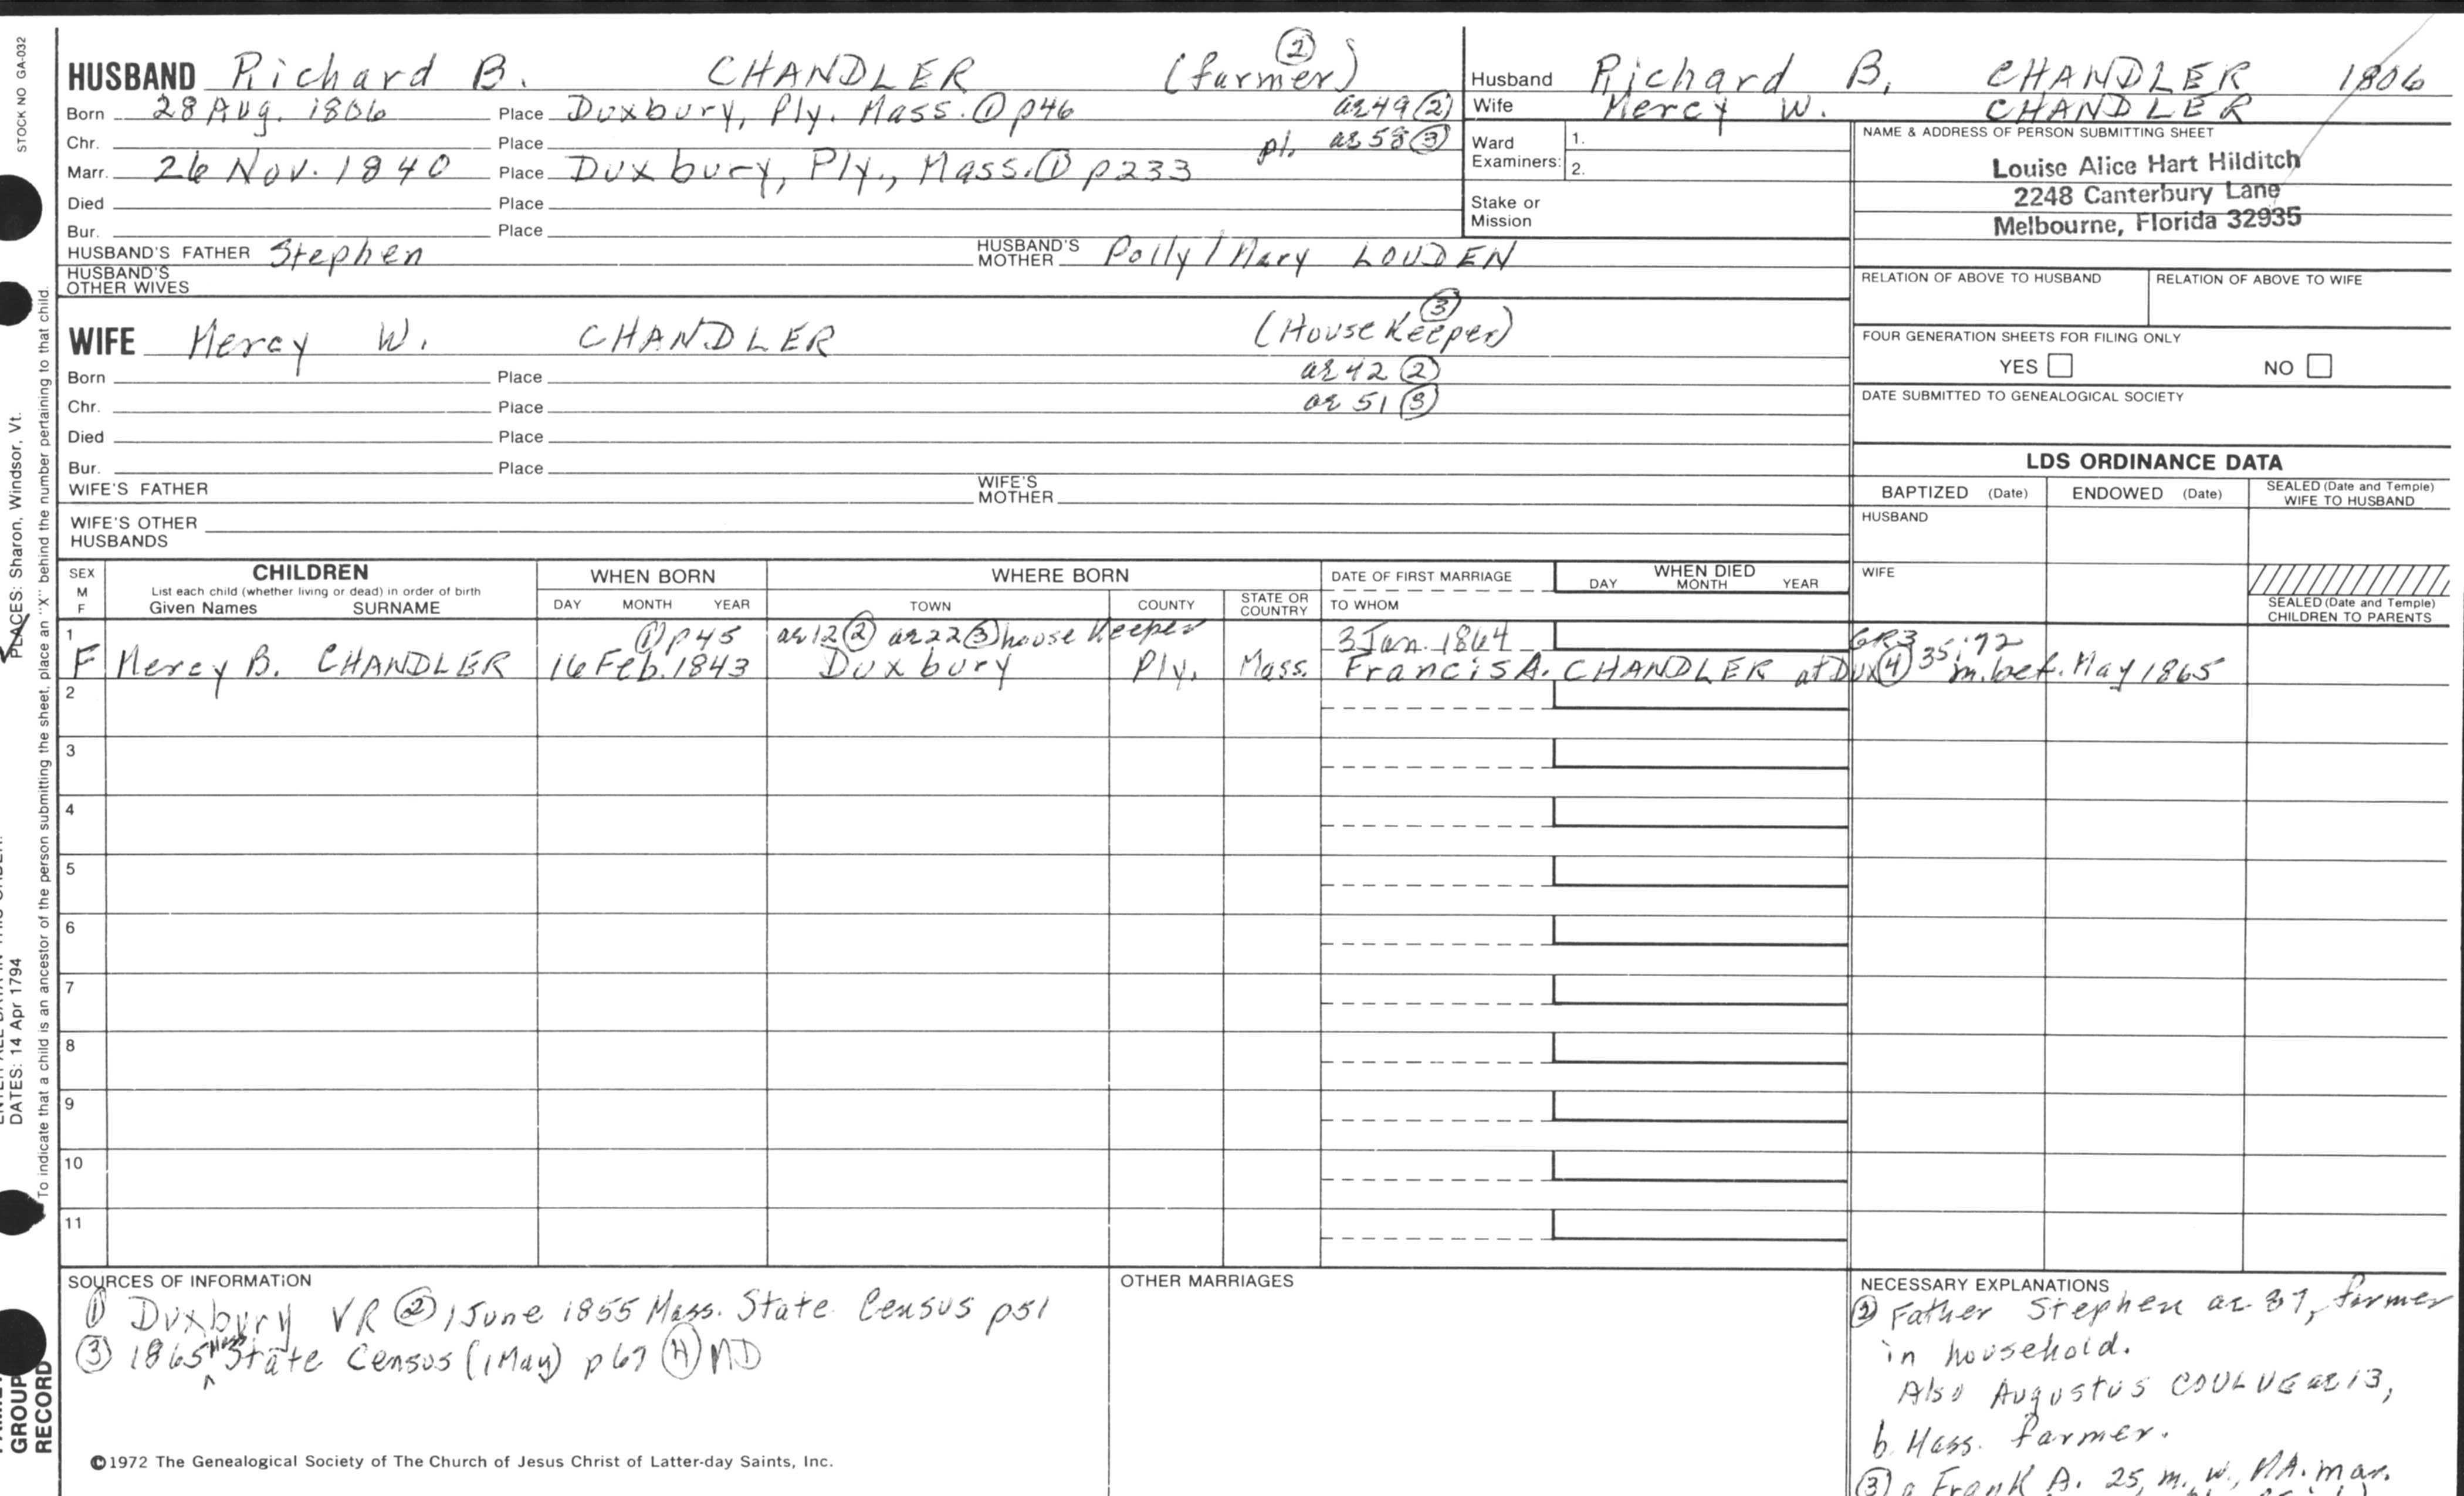 STOCK NO GA-032
HUSBAND Richard B. CHANDLER (farmer) ②
Born 28 Aug. 1806 Place Duxbury, Ply. Mass. ① p46 ae 49 ②
Chr. Place pl. ae 58 ③
Marr. 26 Nov. 1840 Place Duxbury, Ply., Mass. ① p233
Died Place
Bur. Place
HUSBAND'S FATHER Stephen HUSBAND'S MOTHER Polly/Mary LOUDEN
HUSBAND'S OTHER WIVES
Husband Richard B. CHANDLER 1806
Wife Mercy W. CHANDLER
Ward Examiners: 1.
2.
Stake or Mission
NAME & ADDRESS OF PERSON SUBMITTING SHEET
Louise Alice Hart Hilditch
2248 Canterbury Lane
Melbourne, Florida 32935
RELATION OF ABOVE TO HUSBAND RELATION OF ABOVE TO WIFE
FOUR GENERATION SHEETS FOR FILING ONLY
YES NO
DATE SUBMITTED TO GENEALOGICAL SOCIETY
WIFE Mercy W. CHANDLER (House Keeper) ③
Born Place ae 42 ②
Chr. Place ae 51 ③
Died Place
Bur. Place
WIFE'S FATHER WIFE'S MOTHER
WIFE'S OTHER HUSBANDS
LDS ORDINANCE DATA
BAPTIZED (Date) ENDOWED (Date) SEALED (Date and Temple) WIFE TO HUSBAND
HUSBAND
WIFE
SEALED (Date and Temple) CHILDREN TO PARENTS
SEX M F
CHILDREN
List each child (whether living or dead) in order of birth
Given Names SURNAME
WHEN BORN
DAY MONTH YEAR
WHERE BORN
TOWN COUNTY STATE OR COUNTRY
DATE OF FIRST MARRIAGE
TO WHOM
WHEN DIED
DAY MONTH YEAR
1 ① p45 ae 12 ② ae 22 ③ house Keeper 3 Jan. 1864 GR3 35:92
F Mercy B. CHANDLER 16 Feb. 1843 Duxbury Ply. Mass. Francis A. CHANDLER at Dux ④ m. bef. May 1865
2
3
4
5
6
7
8
9
10
11
SOURCES OF INFORMATION
① Duxbury VR ② 1 June 1855 Mass. State Census p51
③ 1865 Mass State Census (1 May) p67 ④ MD
©1972 The Genealogical Society of The Church of Jesus Christ of Latter-day Saints, Inc.
OTHER MARRIAGES
NECESSARY EXPLANATIONS
② Father Stephen ae 87, farmer
in household.
Also Augustus ae 13,
b. Mass. farmer.
③ a Frank A. 25, m. w., MA. mar.
PLACES: Sharon, Windsor, Vt.
DATES: 14 Apr 1794
To indicate that a child is an ancestor of the person submitting the sheet, place an "X" behind the number pertaining to that child.
GROUP
RECORD